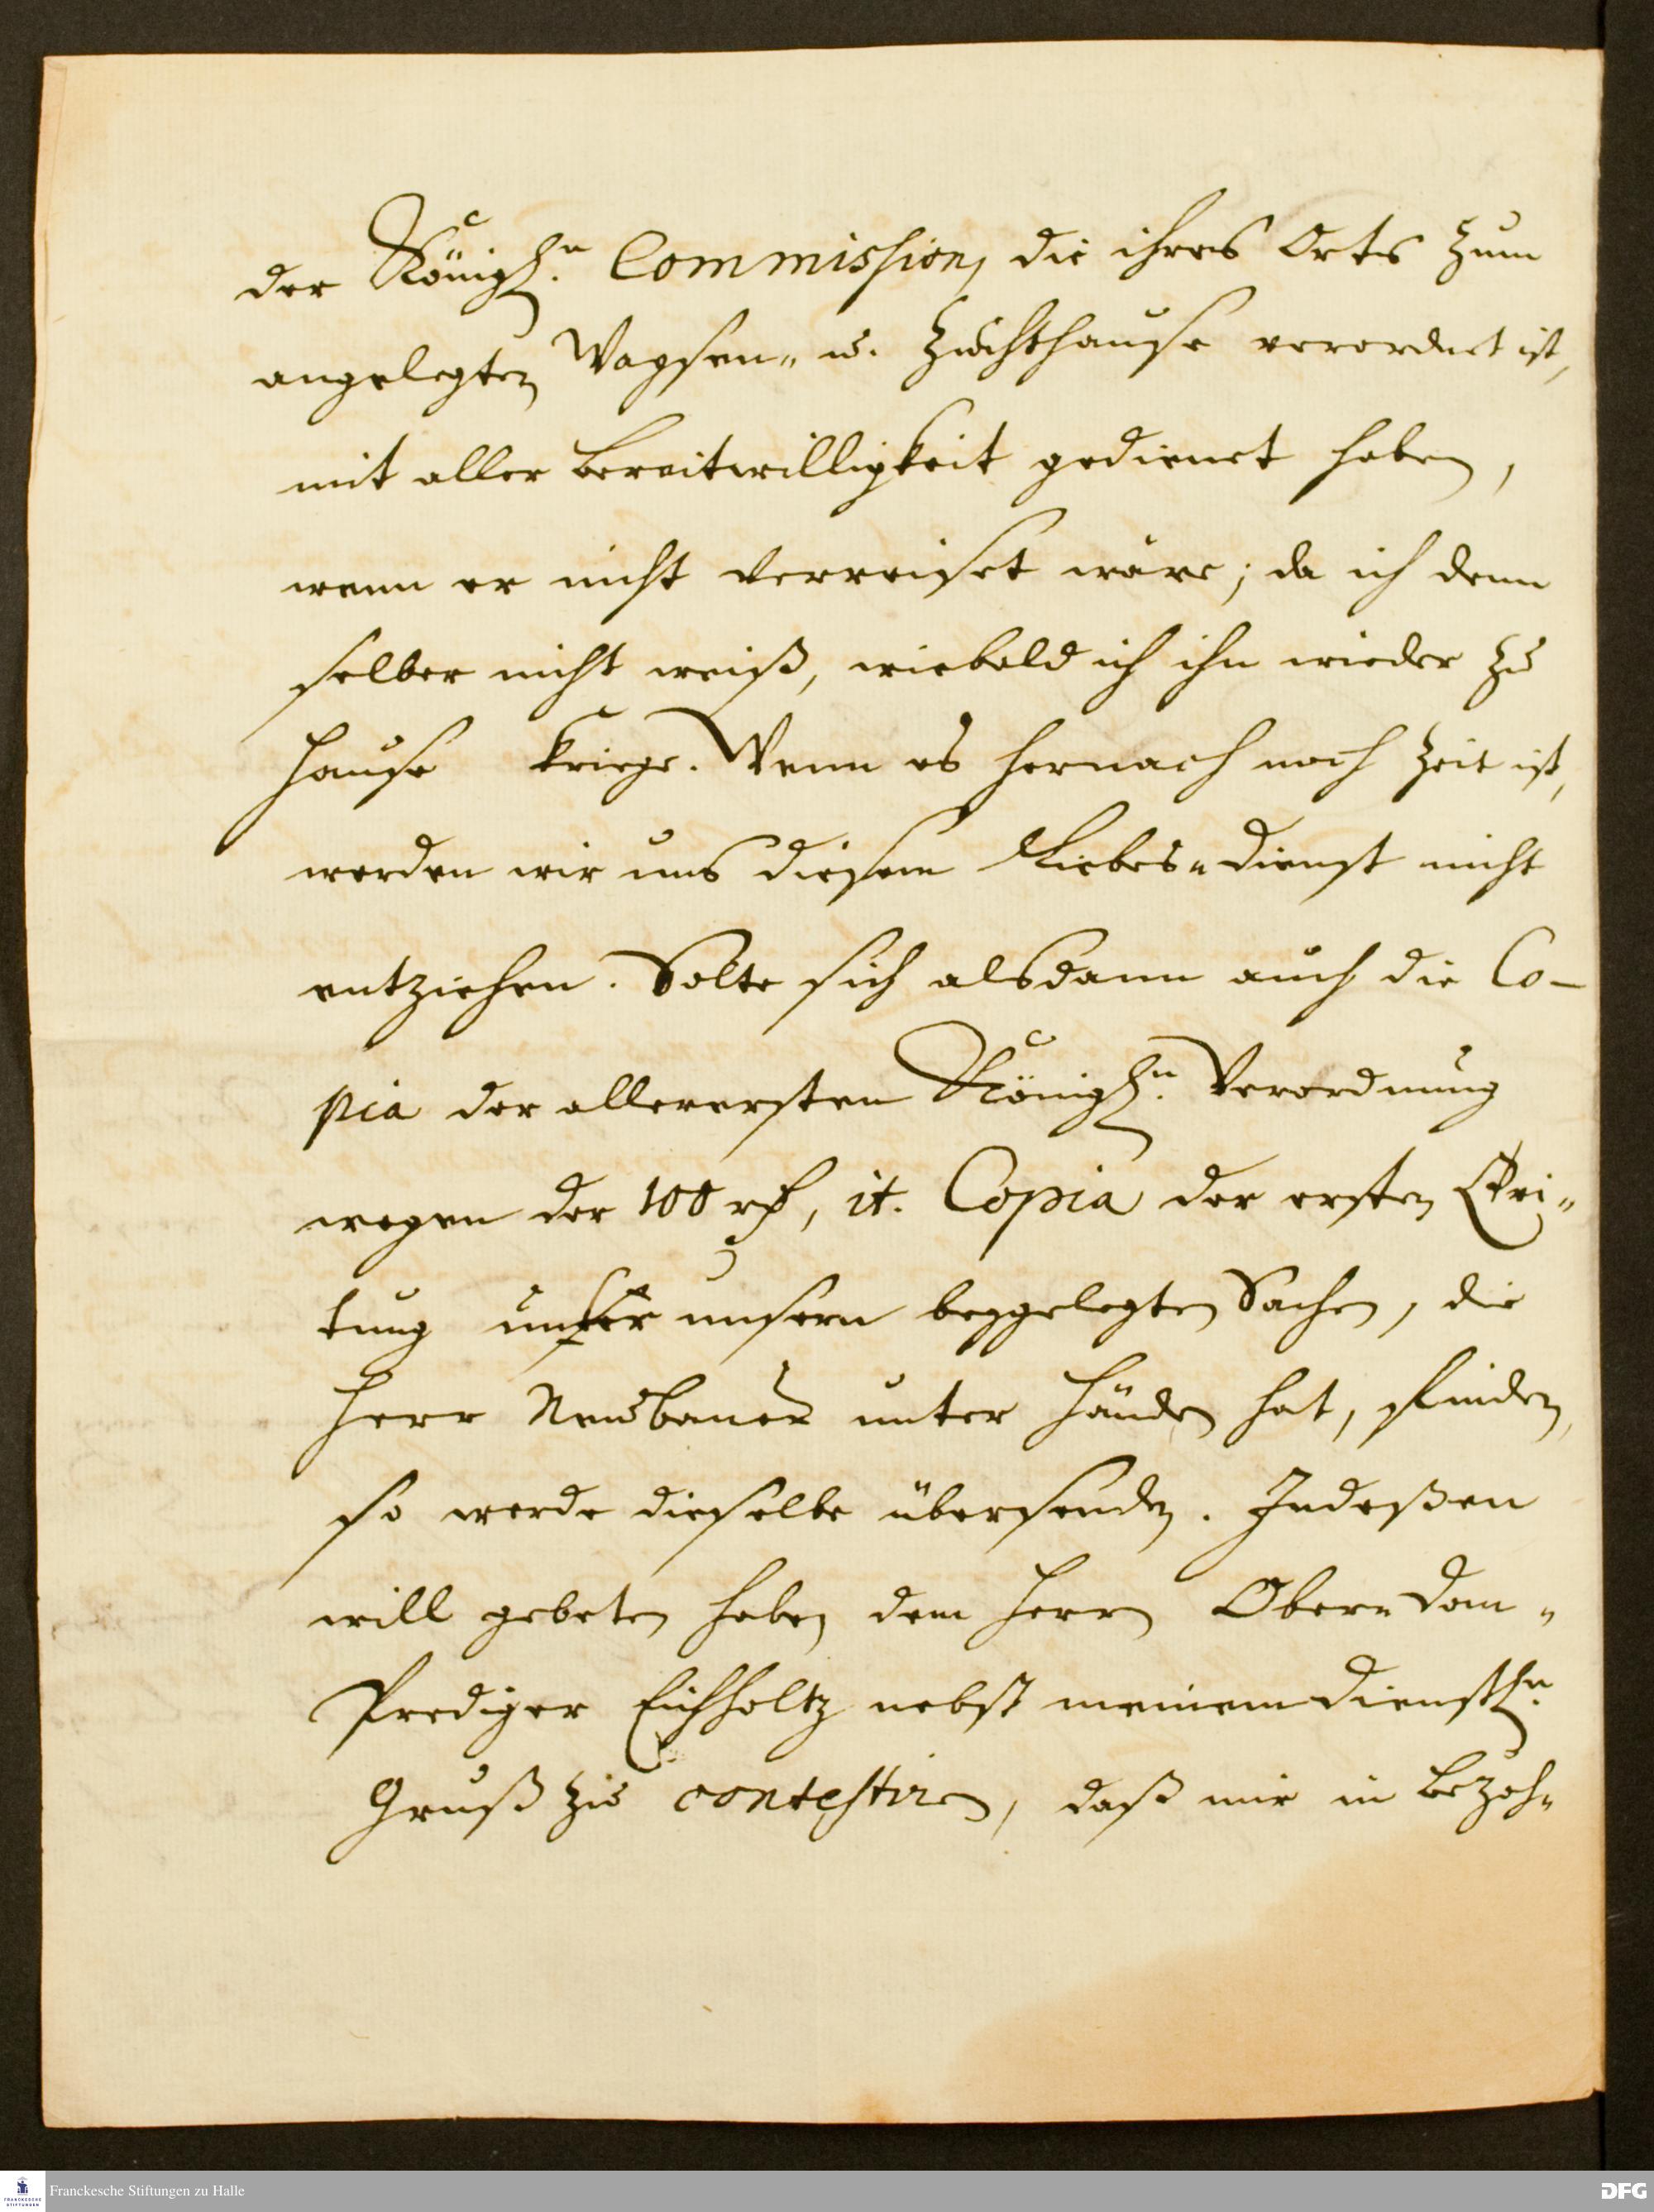 der Königl.n Commission, die ihres Orts zum
angelegten Waysen- u. Zuchthause verordnet ist,
mit aller Bereitwilligkeit gedienet haben,
wenn er nicht verreiset wäre; da ich denn
selber nicht weiß, wiebald ich ihn wieder zu
Hause kriege. Wenn es hernach noch Zeit ist,
werden wir uns diesem Liebes-Dienst nicht
entziehen. Solte sich alsdann auch die Co-
pia der allerersten Königl.n Verordnung
wegen der 100 rth, it. Copia der ersten
tung unter unsern beygelegten Sachen, die
Herr Neubauer unter Händen hat, finden,
so werde dieselbe übersenden. Indeßen
will gebeten haben dem Herrn Ober-Dom-
Prediger Eichholtz nebst meinem Dienstl.n
Gruß zu contestiren, daß mir in Bezah-
Franckesche Stiftungen zu Halle
DFG